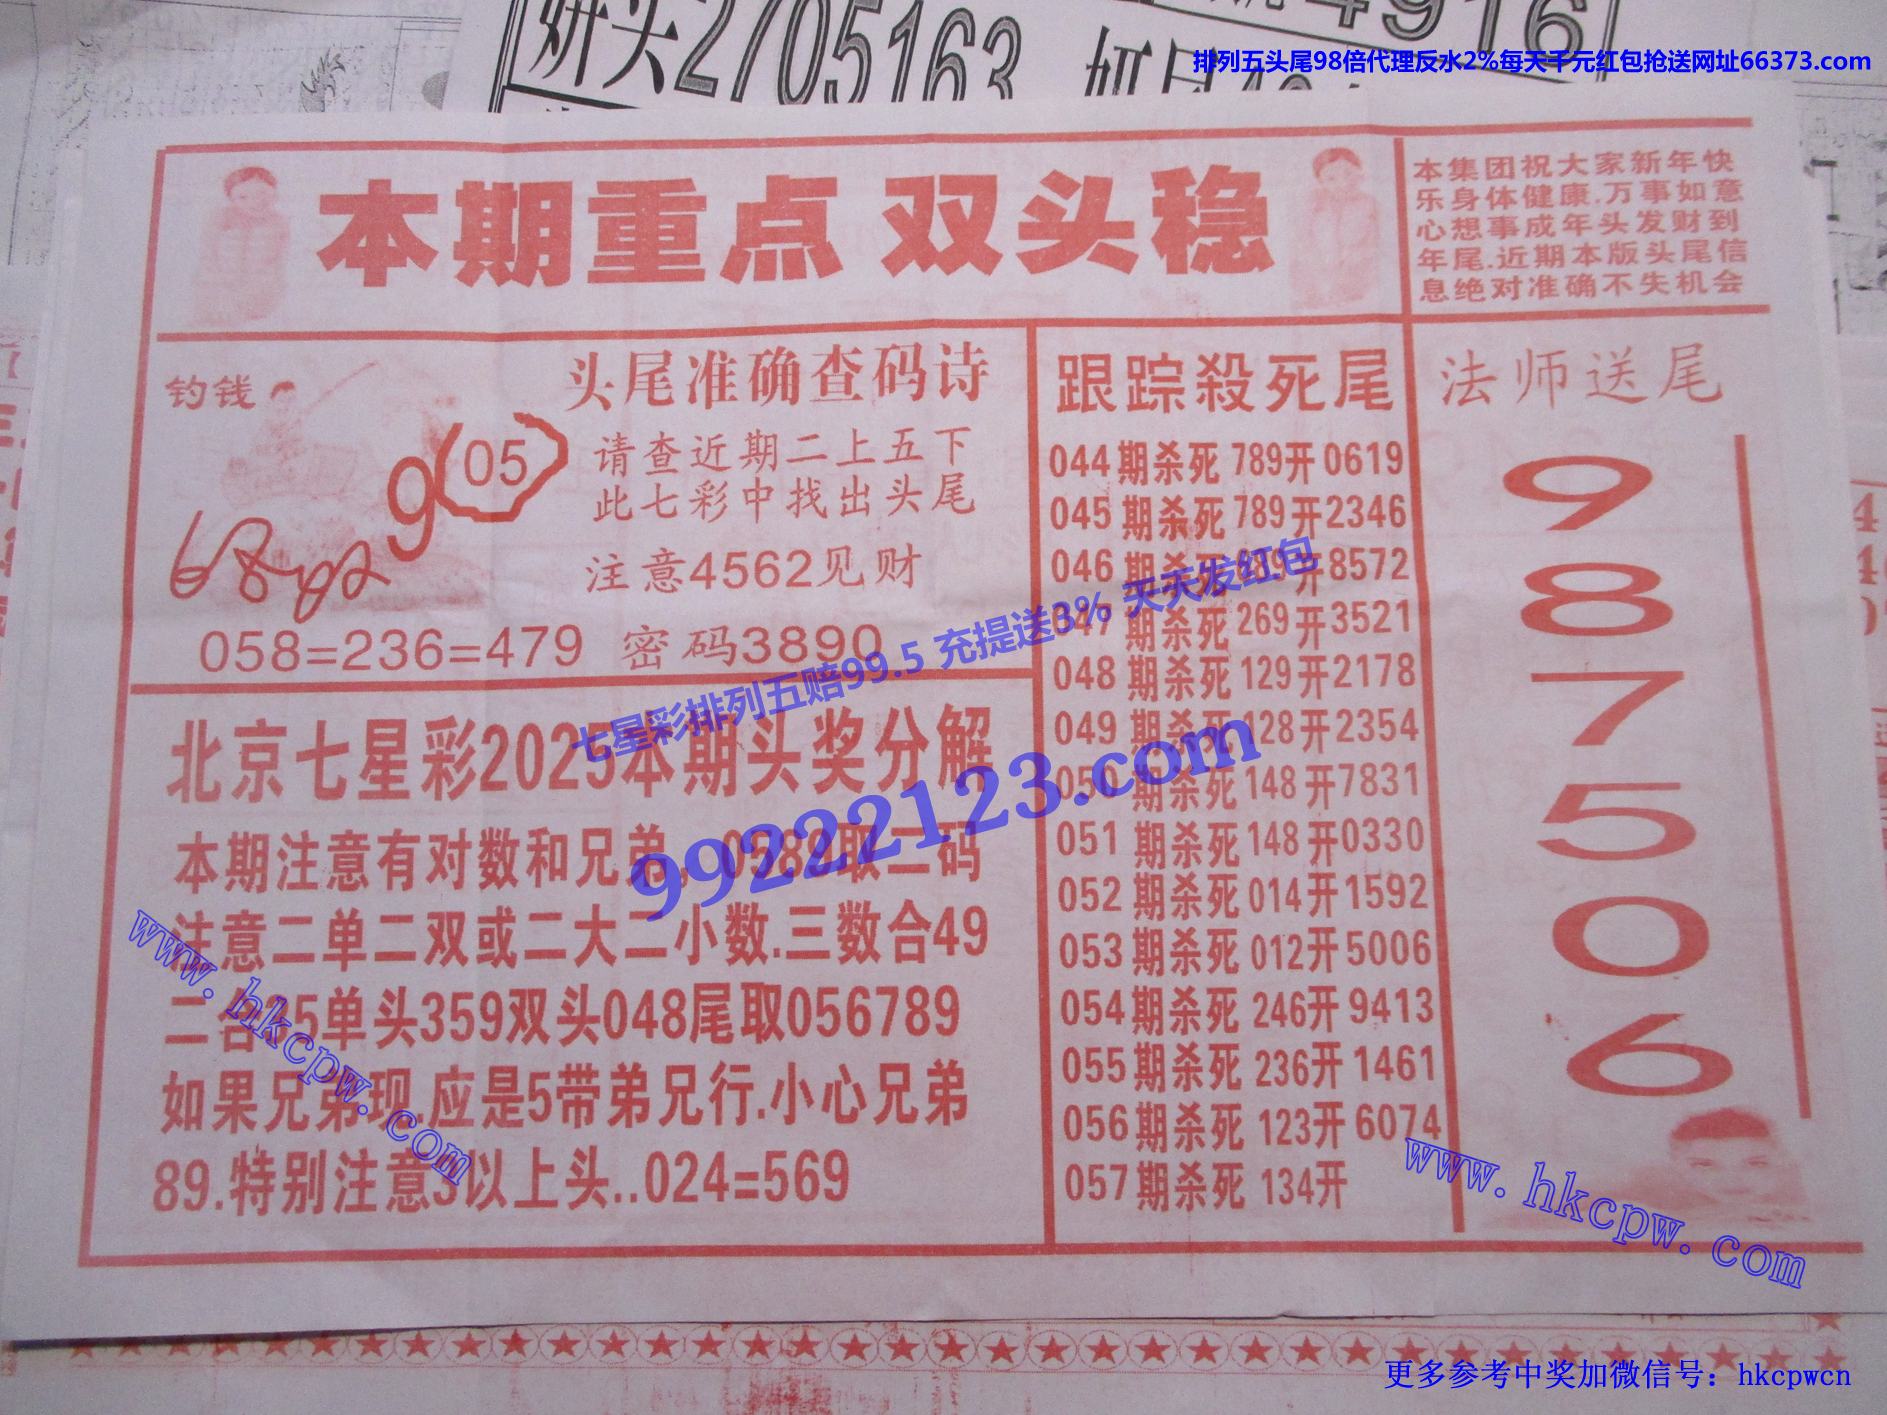 排列五头尾98倍代理反水2%每天千元红包抢送网址66373.com
姘头2705163
4916
本期重点 双头稳
本集团祝大家新年快
乐身体健康.万事如意
心想事成年头发财到
年尾.近期本版头尾信
息绝对准确不失机会
钓钱
9
05
头尾准确查码诗
请查近期二上五下
此七彩中找出头尾
注意4562见财
058=236=479 密码3890
跟踪殺死尾
044期杀死789开0619
045期杀死789开2346
046期杀死689开8572
047期杀死269开3521
048期杀死129开2178
049期杀死128开2354
050期杀死148开7831
051期杀死148开0330
052期杀死014开1592
053期杀死012开5006
054期杀死246开9413
055期杀死236开1461
056期杀死123开6074
057期杀死134开
法师送尾
9
8
7
5
0
6
北京七星彩2025本期头奖分解
本期注意有对数和兄弟,0589取二码
注意二单二双或二大二小数.三数合49
二合35单头359双头048尾取056789
如果兄弟现.应是5带弟兄行.小心兄弟
89.特别注意3以上头..024=569
七星彩排列五赔99.5 充提送3% 天天发红包
99222123.com
www.hkcpw.com
www.hkcpw.com
更多参考中奖加微信号：hkcpwcn